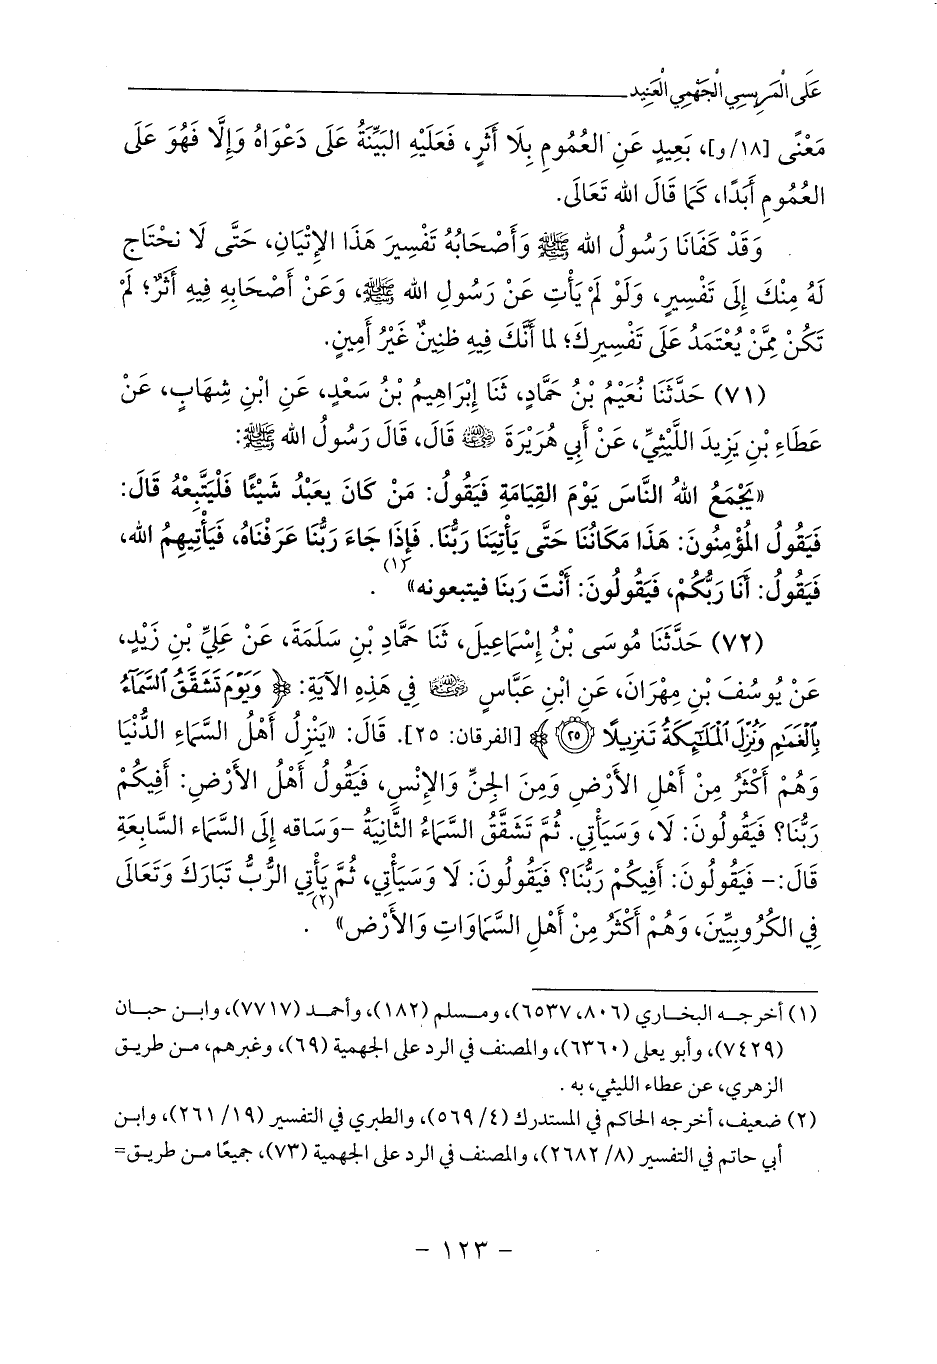 عَلَى الْمَرِيسِي الْجَهْمِي الْعَنِيد
مَعْنًى [١٨/و]، بَعِيدٍ عَنِ العُمُومِ بِلَا أَثَرٍ، فَعَلَيْهِ البَيِّنَةُ عَلَى دَعْوَاهُ وَإِلَّا فَهُوَ عَلَى
العُمُومِ أَبَدًا، كَمَا قَالَ الله تَعَالَى.
وَقَدْ كَفَانَا رَسُولُ الله ﷺ وَأَصْحَابُهُ تَفْسِيرَ هَذَا الإِتْيَانِ، حَتَّى لَا نَحْتَاج
لَهُ مِنْكَ إِلَى تَفْسِيرٍ، وَلَوْ لَمْ يَأْتِ عَنْ رَسُولِ الله ﷺ، وَعَنْ أَصْحَابِهِ فِيهِ أَثَرٌ؛ لَمْ
تَكُنْ مِمَّنْ يُعْتَمَدُ عَلَى تَفْسِيرِكَ؛ لما أَنَّكَ فِيهِ ظنِينٌ غَيْرُ أَمِينٍ.
(٧١) حَدَّثَنَا نُعَيْمُ بْنُ حَمَّادٍ، ثَنَا إِبْرَاهِيمُ بْنُ سَعْدٍ، عَنِ ابْنِ شِهَابٍ، عَنْ
عَطَاءِ بْنِ يَزِيدَ اللَّيْثِيِّ، عَنْ أَبِي هُرَيْرَةَ رضي الله عنه قَالَ، قَالَ رَسُولُ الله ﷺ:
«يَجْمَعُ اللهُ النَّاسَ يَوْمَ القِيَامَةِ فَيَقُولُ: مَنْ كَانَ يعَبْدُ شَيْئًا فَلْيَتَّبِعْهُ قَالَ:
فَيَقُولُ المُؤْمِنُونَ: هَذَا مَكَانُنَا حَتَّى يَأْتِيَنَا رَبُّنَا. فَإِذَا جَاءَ رَبُّنَا عَرَفْنَاهُ، فَيَأْتِيهِمُ الله،
فَيَقُولُ: أَنَا رَبُّكُمْ، فَيَقُولُونَ: أَنْتَ رَبنَا فيتبعونه»(١).
(٧٢) حَدَّثَنَا مُوسَى بْنُ إِسْمَاعِيلَ، ثَنَا حَمَّادِ بْنِ سَلَمَةَ، عَنْ عَلِيِّ بْنِ زَيْدٍ،
عَنْ يُوسُفَ بْنِ مِهْرَانَ، عَنِ ابْنِ عَبَّاسٍ رضي الله عنه فِي هَذِهِ الآيَةِ: ﴿وَيَوْمَ تَشَقَّقُ السَّمَآءُ
بِٱلْغَمَٰمِ وَنُزِّلَ ٱلْمَلَٰٓئِكَةُ تَنزِيلًا ٢٥﴾ [الفرقان: ٢٥]. قَالَ: «يَنْزِلُ أَهْلُ السَّمَاءِ الدُّنْيَا
وَهُمْ أَكْثَرُ مِنْ أَهْلِ الأَرْضِ وَمِنَ الجِنِّ وَالإِنْسِ، فَيَقُولُ أَهْلُ الأَرْضِ: أَفِيكُمْ
رَبُّنَا؟ فَيَقُولُونَ: لَا، وَسَيَأْتِي. ثُمَّ تَشَقَّقُ السَّمَاءُ الثَّانِيَةُ -وَسَاقه إِلَى السَّمَاء السَّابِعَةِ
قَالَ:- فَيَقُولُونَ: أَفِيكُمْ رَبُّنَا؟ فَيَقُولُونَ: لَا وَسَيَأْتِي، ثُمَّ يَأْتِي الرَّبُّ تَبَارَكَ وَتَعَالَى
فِي الكُرُوبِيِّينَ، وَهُمْ أَكْثَرُ مِنْ أَهْلِ السَّمَاوَاتِ وَالأَرْض»(٢).
(١) أخرجه البخاري (٨٠٦، ٦٥٣٧)، ومسلم (١٨٢)، وأحمد (٧٧١٧)، وابن حبان
(٧٤٢٩)، وأبو يعلى (٦٣٦٠)، والمصنف في الرد على الجهمية (٦٩)، وغيرهم، من طريق
الزهري، عن عطاء الليثي، به.
(٢) ضعيف، أخرجه الحاكم في المستدرك (٤/ ٥٦٩)، والطبري في التفسير (١٩/ ٢٦١)، وابن
أبي حاتم في التفسير (٨/ ٢٦٨٢)، والمصنف في الرد على الجهمية (٧٣)، جميعًا من طريق=
- ١٢٣ -